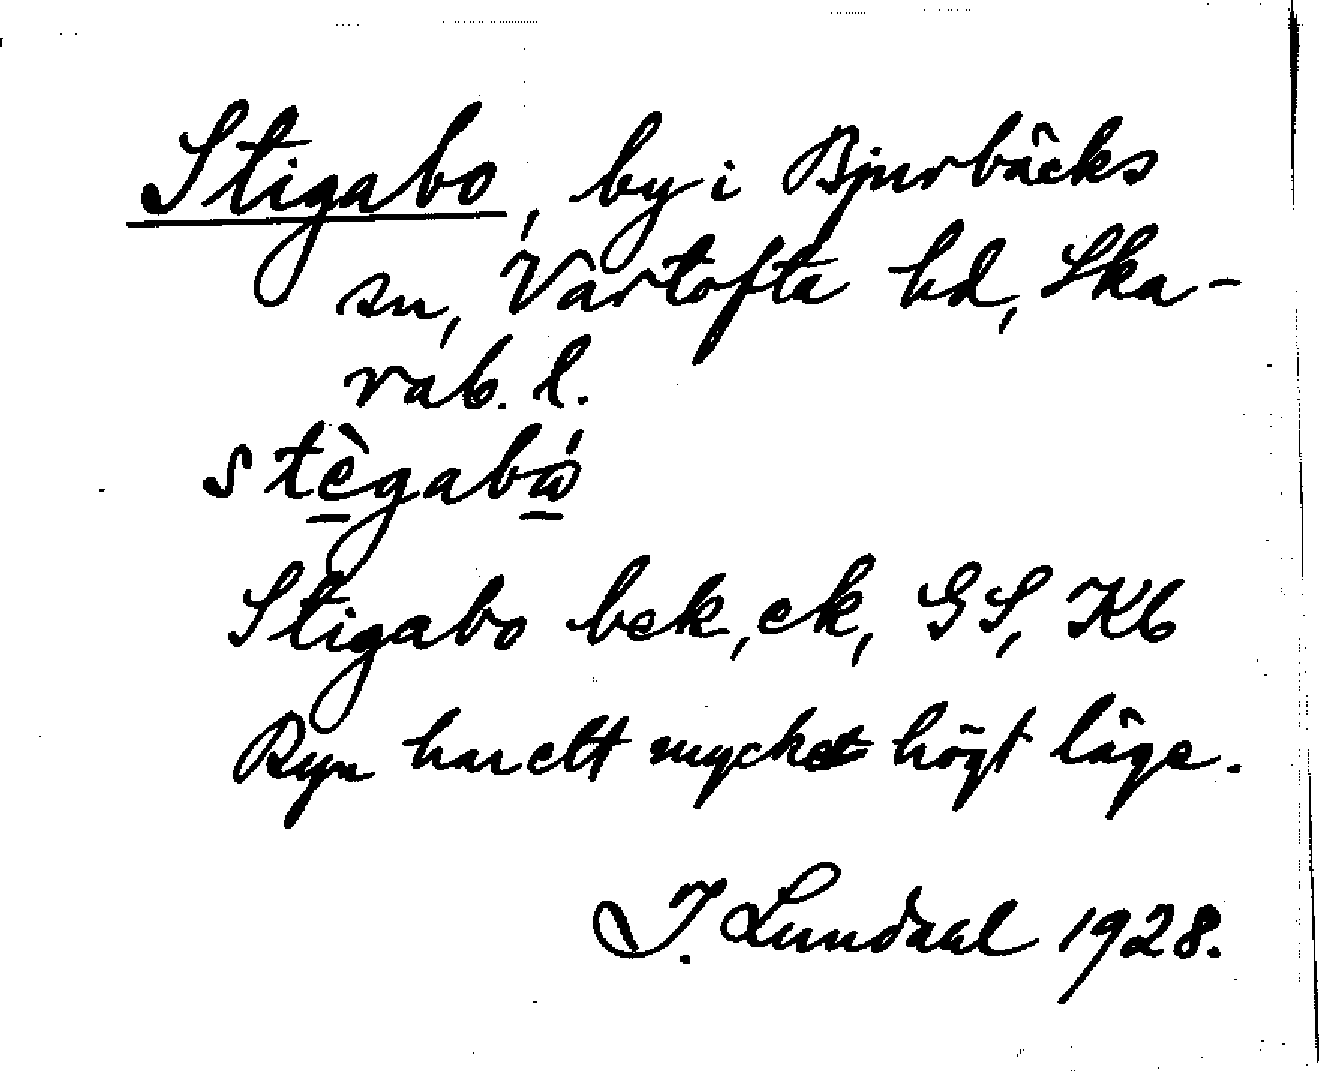 Stigabo, by i Bjurbäcks
sn, Vartofta hd, Ska-
rab. l.
stègabó
Stigabo bek, ek, GS, Kb
Byn har ett mycket högt läge.
I. Lundahl 1928.